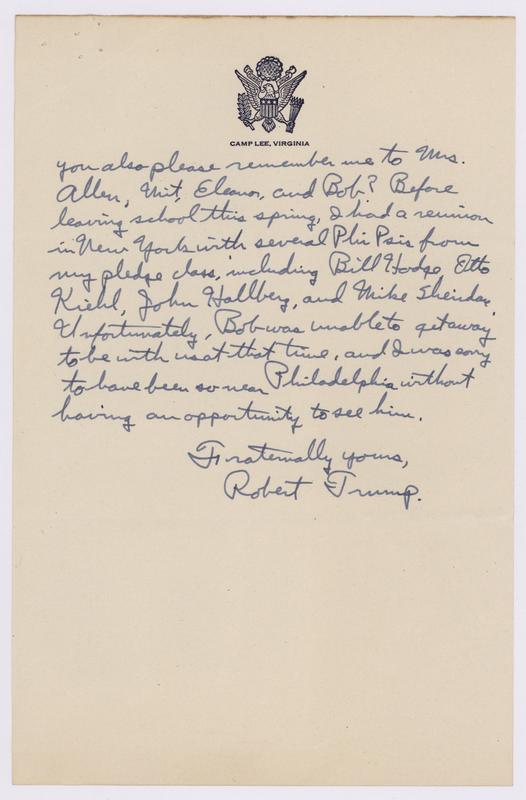 CAMP LEE, VIRGINIA
you also please remember me to Mrs.
Allen, Mit, Eleanor, and Bob? Before
leaving school this spring, I had a reunion
in New York with several Phi Psis from
my pledge class, including Bill Hodge, Otto
Kiehl, John Hallberg, and Mike Sheridan.
Unfortunately, Bob was unable to get away
to be with us at that time, and I was sorry
to have been so near Philadelphia without
having an opportunity to see him.
Fraternally yours,
Robert Trump.